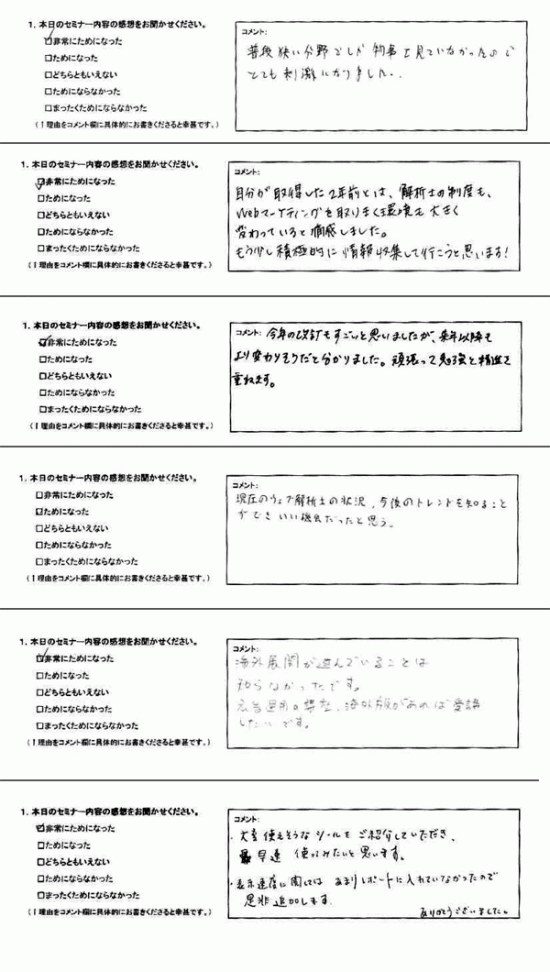 1. 本日のセミナー内容の感想をお聞かせください。
☑非常にためになった
□ためになった
□どちらともいえない
□ためにならなかった
□まったくためにならなかった
(1理由をコメント欄に具体的にお書きくださると幸甚です。)
コメント:
普段狭い分野でしか物事を見ていなかったので
とても刺激になりました..
1. 本日のセミナー内容の感想をお聞かせください。
☑非常にためになった
□ためになった
□どちらともいえない
□ためにならなかった
□まったくためにならなかった
(1理由をコメント欄に具体的にお書きくださると幸甚です。)
コメント:
自分が取得した2年前とは、解析士の制度も、
Webマーケティングを取りまく環境も大きく
変わっていると痛感しました。
もう少し積極的に情報収集して行こうと思います!
1. 本日のセミナー内容の感想をお聞かせください。
☑非常にためになった
□ためになった
□どちらともいえない
□ためにならなかった
□まったくためにならなかった
(1理由をコメント欄に具体的にお書きくださると幸甚です。)
コメント: 今年の改訂もすごいと思いましたが、来年以降も
より変わりそうだと分かりました。頑張って勉強と精進を
重ねます。
1. 本日のセミナー内容の感想をお聞かせください。
□非常にためになった
☑ためになった
□どちらともいえない
□ためにならなかった
□まったくためにならなかった
(1理由をコメント欄に具体的にお書きくださると幸甚です。)
コメント:
現在のウェブ解析士の状況、今後のトレンドを知ること
ができ いい機会だったと思う。
1. 本日のセミナー内容の感想をお聞かせください。
☑非常にためになった
□ためになった
□どちらともいえない
□ためにならなかった
□まったくためにならなかった
(1理由をコメント欄に具体的にお書きくださると幸甚です。)
コメント:
海外展開が進んでいることは
知らなかったです。
広告運用の講座、海外版があれば受講
したいです。
1. 本日のセミナー内容の感想をお聞かせください。
☑非常にためになった
□ためになった
□どちらともいえない
□ためにならなかった
□まったくためにならなかった
(1理由をコメント欄に具体的にお書きくださると幸甚です。)
コメント:
・大変使えそうなツールをご紹介していただき、
早速 使ってみたいと思います。
・表示速度に関しては あまりレポートに入れていなかったので
是非追加します.
ありがとうございました。